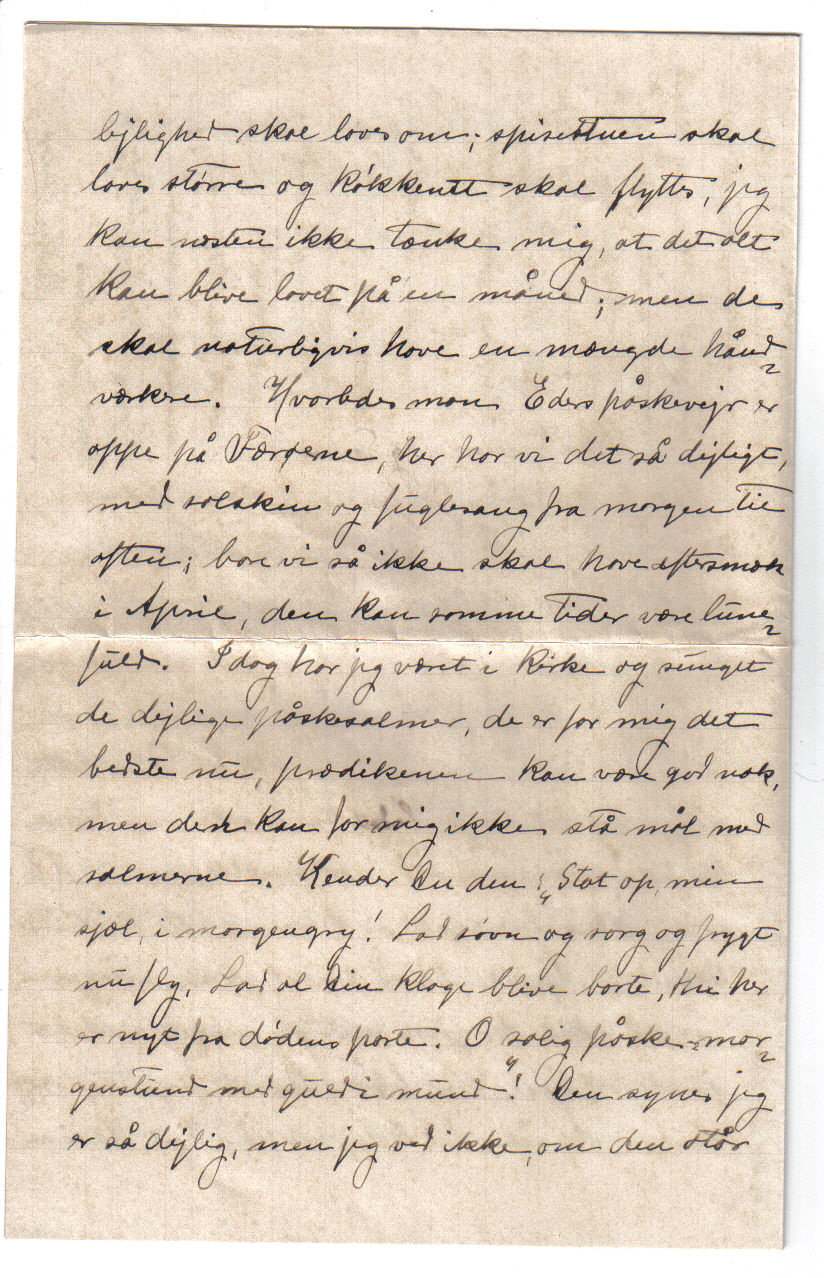 lejlighed skal laves om; spisestuen skal
laves større og køkkenet skal flyttes, jeg
kan næsten ikke tænke mig, at det alt
kan blive lavet på en måned; men de
skal naturligvis have en mængde hånd-
værkere. Hvorledes mon Eders påskevejr er
oppe på Færøerne, her har vi det så dejligt,
med solskin og fuglesang fra morgen til
aften; bare vi så ikke skal have eftersmæk
i April, den kan somme tider være lune-
fuld. Idag har jeg været i kirke og sunget
de dejlige påskesalmer, de er for mig det
bedste nu, prædikenen kan være god nok,
men den kan for mig ikke stå mål med
salmerne. Kender Du den: „Stat op, min
sjæl, i morgengry! Lad søvn og sorg og frygt
nu fly, Lad al Din klage blive borte, thi her
er nyt fra dødens porte. O salig påske-mor-
genstund med guld i mund“! Den synes jeg
er så dejlig, men jeg ved ikke, om den står